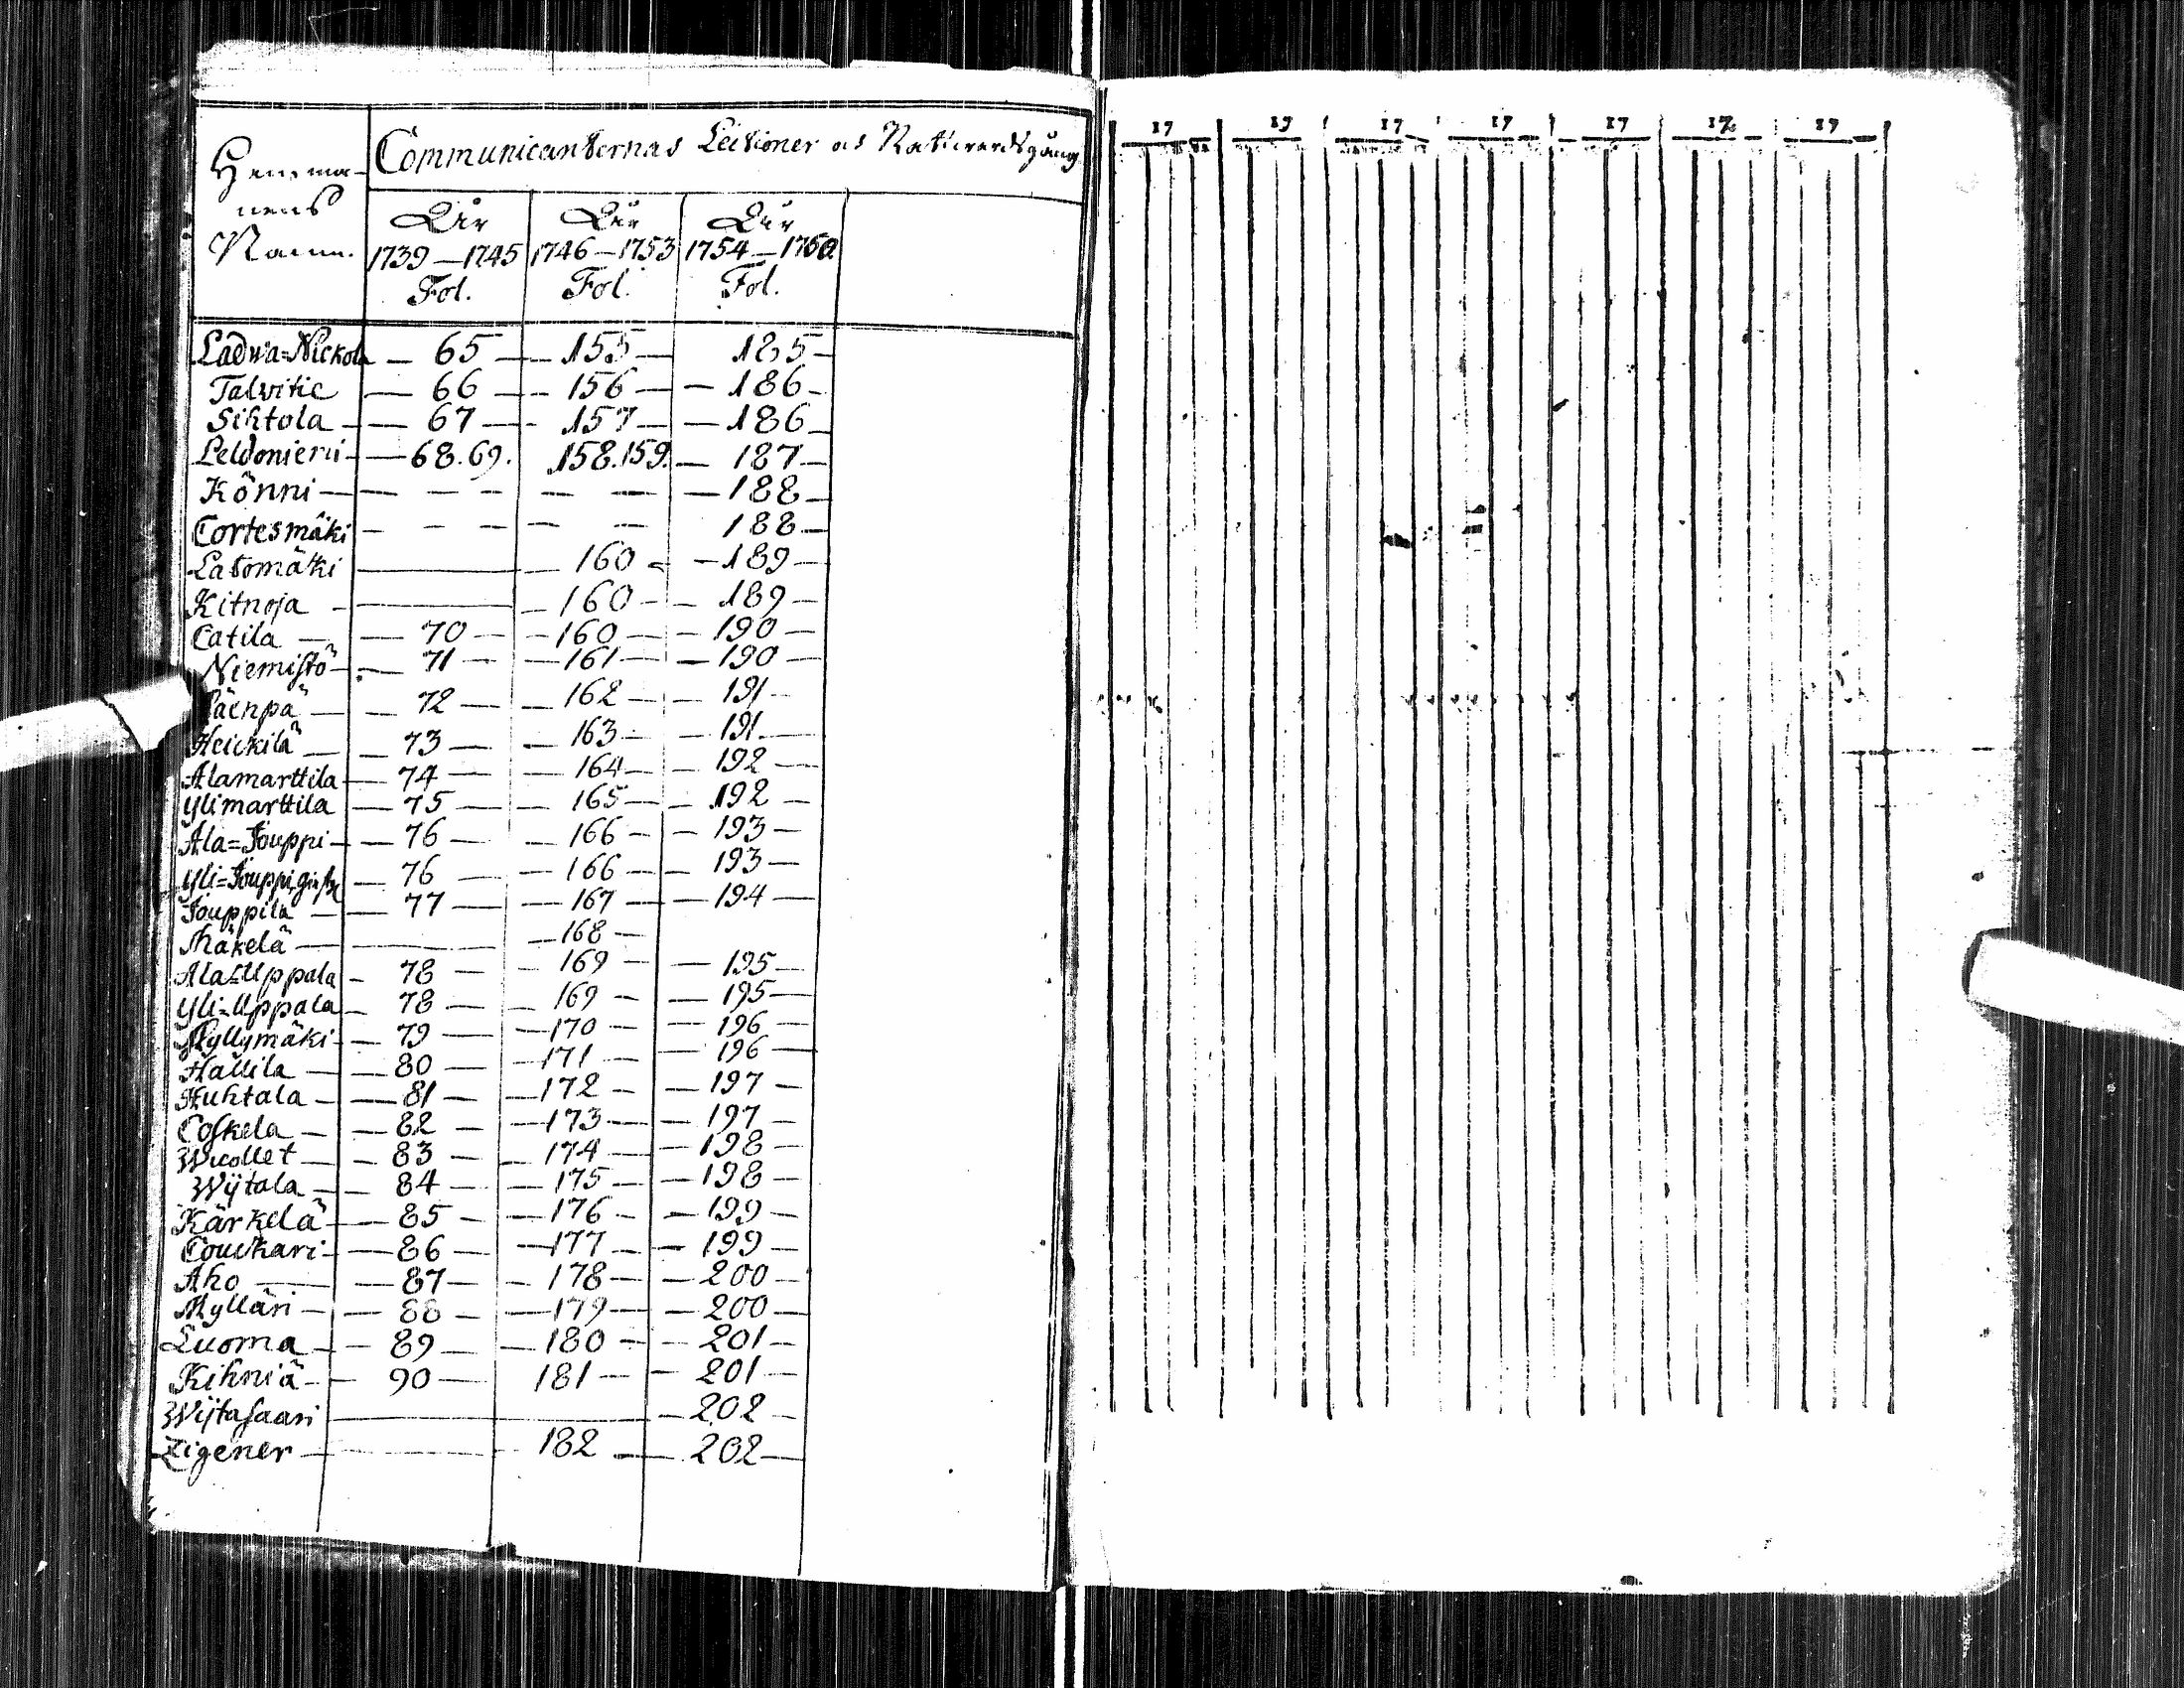 Hemma-
nens
Namn.
Communicanternas Lectioner och Nattvardsgång
Åår Åår Åår
1739—1745 1746—1753 1754—1760
Fol. Fol. Fol.
Ladwa=Nickola — 65 — 155 — 185
Talvitie — 66 — 156 — 186
Sihtola — 67 — 157 — 186
68.69. 158.159. — 187
Könni — — — — — — 188
Cortesmäki — — — — — 188
Latomäki — 160 — 189
Kitnoja — 160 — 189
Catila — 70 — 160 — 190
Niemistö — 71 — 161 — 190
Päenpä — 72 — 162 — 191
Heickilä — 73 — 163 — 191
Alamarttila — 74 — 164 — 192
Ylimarttila — 75 — 165 — 192
Ala=Jouppi — 76 — 166 — 193
Yli=Jouppi — 76 — 166 — 193
Jouppila — 77 — 167 — 194
Mäkelä — 168
Ala=Uppala — 78 — 169 — 195
Yli=Uppala — 78 — 169 — 195
Myllymäki — 79 — 170 — 196
Hallila — 80 — 171 — 196
Huhtala — 81 — 172 — 197
Coskela — 82 — 173 — 197
Wuollet — 83 — 174 — 198
Wijtala — 84 — 175 — 198
Kärkelä — 85 — 176 — 199
Couckari — 86 — 177 — 199
Aho — 87 — 178 — 200
Mylläri — 88 — 179 — 200
Luoma — 89 — 180 — 201
Kihniä — 90 — 181 — 201
Wijtasaari — 202
Zigener — 182 — 202
17 17 17 17 17 17 17